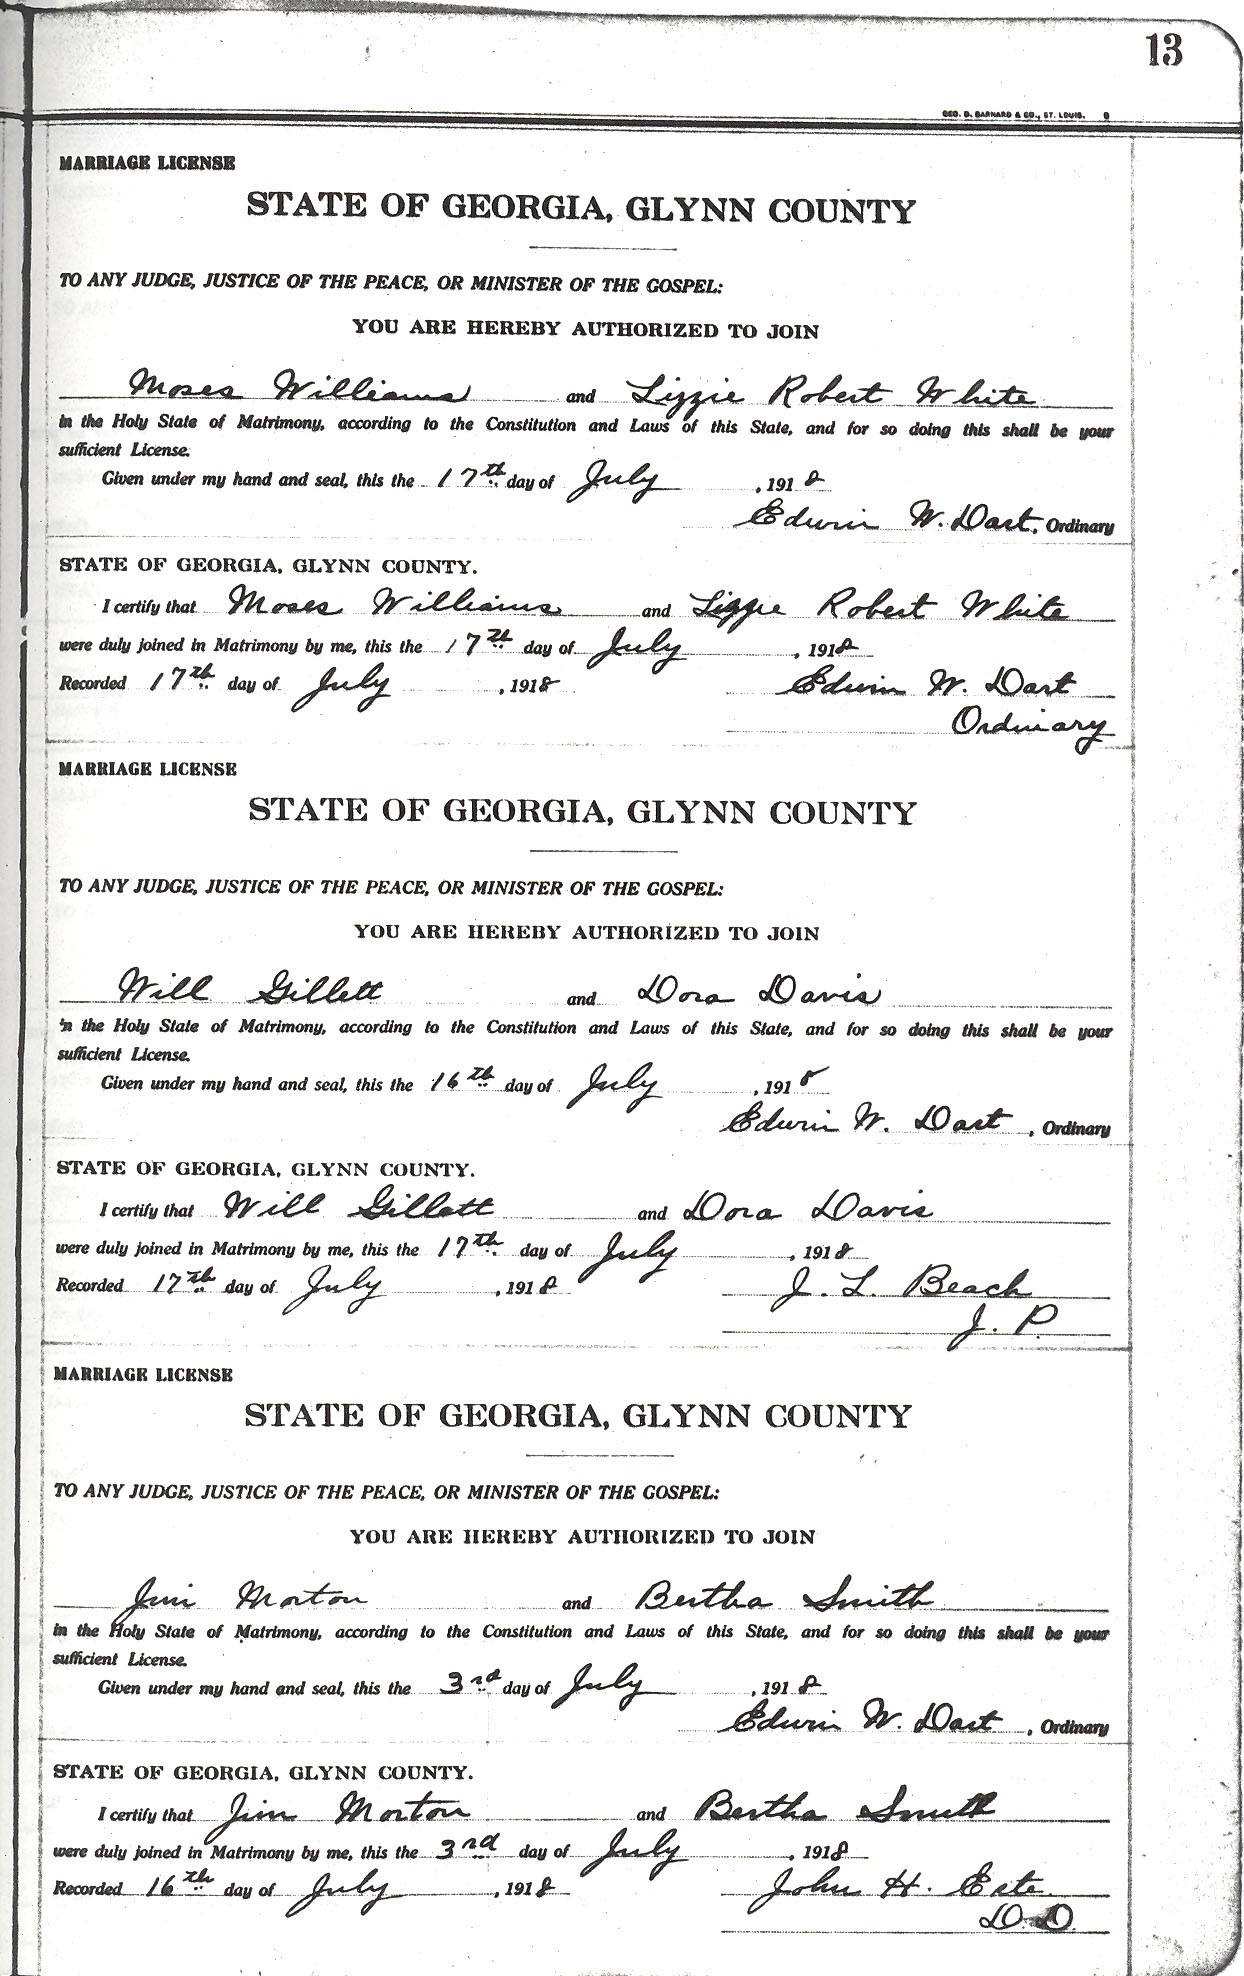 13
GEO. D. BARNARD & CO., ST. LOUIS.
MARRIAGE LICENSE
STATE OF GEORGIA, GLYNN COUNTY
TO ANY JUDGE, JUSTICE OF THE PEACE, OR MINISTER OF THE GOSPEL:
YOU ARE HEREBY AUTHORIZED TO JOIN
Moses Williams and Lizzie Robert White
in the Holy State of Matrimony, according to the Constitution and Laws of this State, and for so doing this shall be your
sufficient License.
Given under my hand and seal, this the 17th day of July, 1918
Edwin W. Dart, Ordinary
STATE OF GEORGIA, GLYNN COUNTY.
I certify that Moses Williams and Lizzie Robert White
were duly joined in Matrimony by me, this the 17th day of July, 1918
Recorded 17th day of July, 1918 Edwin W. Dart
Ordinary
MARRIAGE LICENSE
STATE OF GEORGIA, GLYNN COUNTY
TO ANY JUDGE, JUSTICE OF THE PEACE, OR MINISTER OF THE GOSPEL:
YOU ARE HEREBY AUTHORIZED TO JOIN
Will Gillett and Dora Davis
in the Holy State of Matrimony, according to the Constitution and Laws of this State, and for so doing this shall be your
sufficient License.
Given under my hand and seal, this the 16th day of July, 1918
Edwin W. Dart, Ordinary
STATE OF GEORGIA, GLYNN COUNTY.
I certify that Will Gillett and Dora Davis
were duly joined in Matrimony by me, this the 17th day of July, 1918
Recorded 17th day of July, 1918 J. L. Beach
J. P.
MARRIAGE LICENSE
STATE OF GEORGIA, GLYNN COUNTY
TO ANY JUDGE, JUSTICE OF THE PEACE, OR MINISTER OF THE GOSPEL:
YOU ARE HEREBY AUTHORIZED TO JOIN
Jim Morton and Bertha Smith
in the Holy State of Matrimony, according to the Constitution and Laws of this State, and for so doing this shall be your
sufficient License.
Given under my hand and seal, this the 3rd day of July, 1918
Edwin W. Dart, Ordinary
STATE OF GEORGIA, GLYNN COUNTY.
I certify that Jim Morton and Bertha Smith
were duly joined in Matrimony by me, this the 3rd day of July, 1918
Recorded 16th day of July, 1918 John H. Este
D. D.